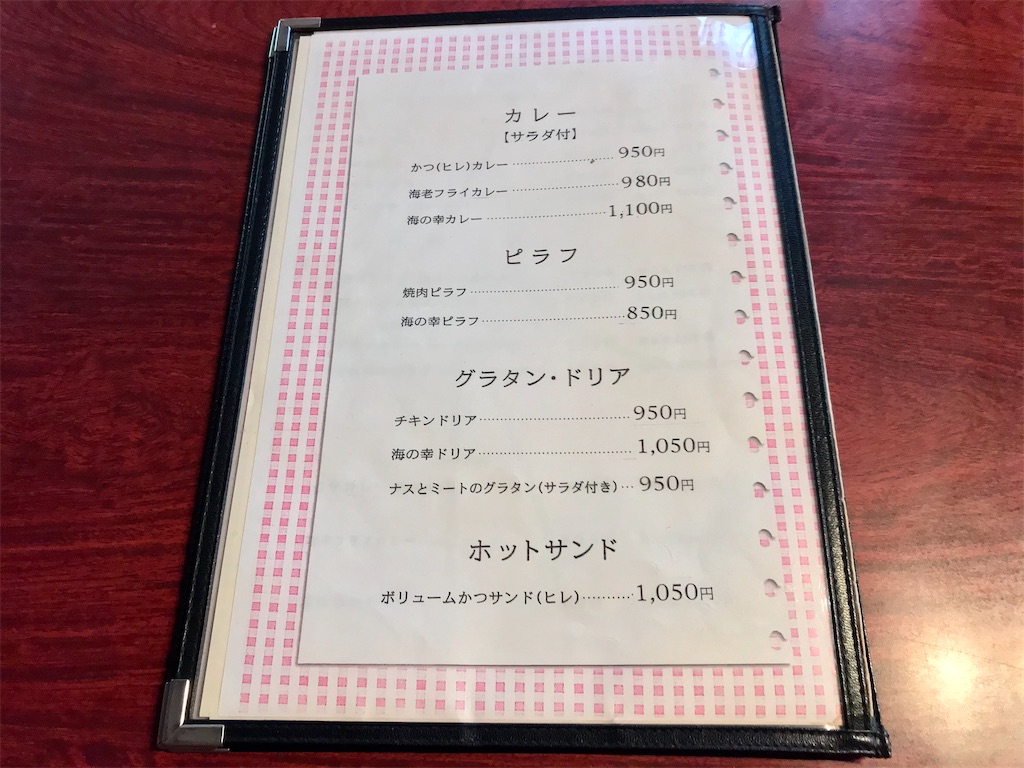 カレー
【サラダ付】
かつ(ヒレ)カレー 950円
海老フライカレー 980円
海の幸カレー 1,100円
ピラフ
焼肉ピラフ 950円
海の幸ピラフ 850円
グラタン・ドリア
チキンドリア 950円
海の幸ドリア 1,050円
ナスとミートのグラタン(サラダ付き) 950円
ホットサンド
ボリュームかつサンド(ヒレ) 1,050円